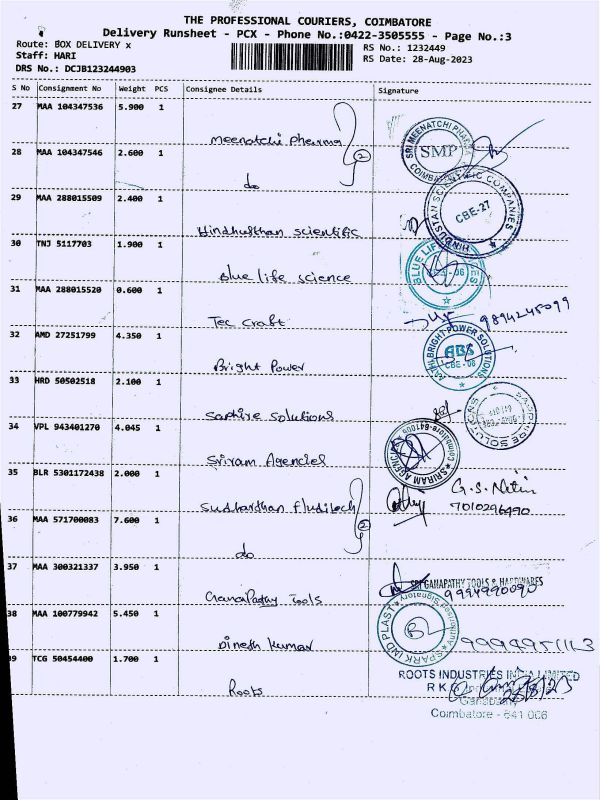 THE PROFESSIONAL COURIERS, COIMBATORE
Delivery Runsheet - PCX - Phone No.:0422-3505555 - Page No.:3
Route: BOX DELIVERY x
RS No.: 1232449
Staff: HARI
RS Date: 28-Aug-2023
DRS No.: DCJB123244903
S No Consignment No Weight PCS Consignee Details Signature
27 MAA 104347536 5.900 1
Meenatchi Pharma
SRI MEENATCHI PHARMA
SMP
COIMBATORE
28 MAA 104347546 2.600 1
do
2
29 MAA 288015509 2.400 1
Hindhusthan scientific
HINDUSTAN SCIENTIFIC COMPANIES
CBE-27
30 TNJ 5117703 1.900 1
Blue life science
BLUE LIFE
31 MAA 288015520 0.600 1
Tec craft
9894245099
32 AMD 27251799 4.350 1
Bright Power
BRIGHT POWER SOLUTIONS
CBE-06
33 HRD 50502518 2.100 1
Saphire Solutions
SAPPHIRE SOLUTIONS
34 VPL 943401270 4.045 1
Sriram Agencies
SRIRAM AGENCIES
Coimbatore-641006
35 BLR 5301172438 2.000 1
Sudharshan Fluditech
G.S. Nitin
7010296490
36 MAA 571700083 7.600 1
do
2
37 MAA 300321337 3.950 1
Ganapathy Tools
SRI GANAPATHY TOOLS & HARDWARES
9994990090
38 MAA 100779942 5.450 1
Dinesh kumar
SPARK IND PLAST
Authorised Signatory
39 TCG 50454400 1.700 1
Roots
ROOTS INDUSTRIES INDIA LIMITED
Ganapathy
Coimbatore - 641 006